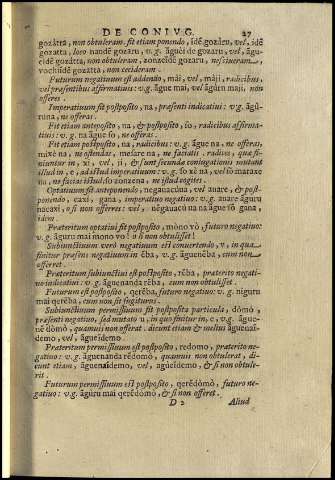 DE CONIVG. 27
gozàtta, non obtuleram. fit etiam ponendo, idẽ. gozàru, vel, idẽ
gozatta, loco nandẽ gozaru, v.g. àguẽi dẽ gozaru, vel, àgu-
eidẽ gozatta, non obtuleram, zonzeidẽ gozaru, nesciueram,
vochiidẽ gozatta, non cecideram.
Futurum negatiuum est addendo, mài, vel, màji, radicibus,
vel presentibus affirmatiuis: v.g. àgue mai, vel àgùru maji, non
offeres.
Imperatiuum fit postposito, na, præsenti indicatiui: v.g. àgù-
runa, ne offeras.
Fit etiam anteposito, na, & postposito, so, radicibus affirma-
tiuis: v.g. na àgue so, ne offeras.
Fit etiam postposito, na, radicibus: v.g. àgue na, ne offeras,
mixe na, ne ostendas, mesare na, ne facialis. radices, quæ fi-
niuntur in, xi, vel, ji, & sunt secundæ coniugationis mutant
illud in, e, ad istud imperatiuum: v.g. fo xe na, vel fo mataxe
na, ne facias illud, fo zonzena, ne istud cogites.
Optatiuum fit anteponendo, negauacùua, vel auare, & post-
ponendo, caxi, gana, imperatiuo negatiuo: v.g. auare àgùru
nacaxi, o si non offerres: vel, nẽgauacù ua na àgue so gana,
idem.
Præteritum optatiui fit postposito, mòno vò, futuro negatiuo:
v.g. àgùru mai mono vo! o si non obtulisset!
Subiunctiuum verò negatiuum est conuertendo, v, in qua
finitur præsens negatiuum in ẽba, v.g. àguenẽba, cum non
offerret.
Præteritum subiunctiui est postposito, rẽba, præterito negati-
uo indicatiui: v.g. àguenanda rẽba, cum non obtulisset.
Futurum est postposito, qerẽba, futuro negatiuo: v.g. nigùru
mai qerẽba, cum non sit fugiturus.
Subiunctiuum permissiuum fit postposita particula, dòmo,
presenti negatiuo, sed mutato u, in quo finitur in, e, v.g. àgue-
nẽ dòmo, quamuis non offerat. dicunt etiam & melius àguenai
demo, vel, àgueidemo.
Præteritum permissiuum est postposito, redomo, præterito ne-
gatiuo: v.g. àguenanda rẽdòmò, quamuis non obtulerat, di-
cunt etiam, àguenaidemo, vel, àgueidemo, & si non obtule-
rit.
Futurum permissiuum est postposito, qerẽdòmò, futuro ne-
gatiuo: v.g. àgùru mai qerẽdòmo, & si non offeret.
D 2 Aliud